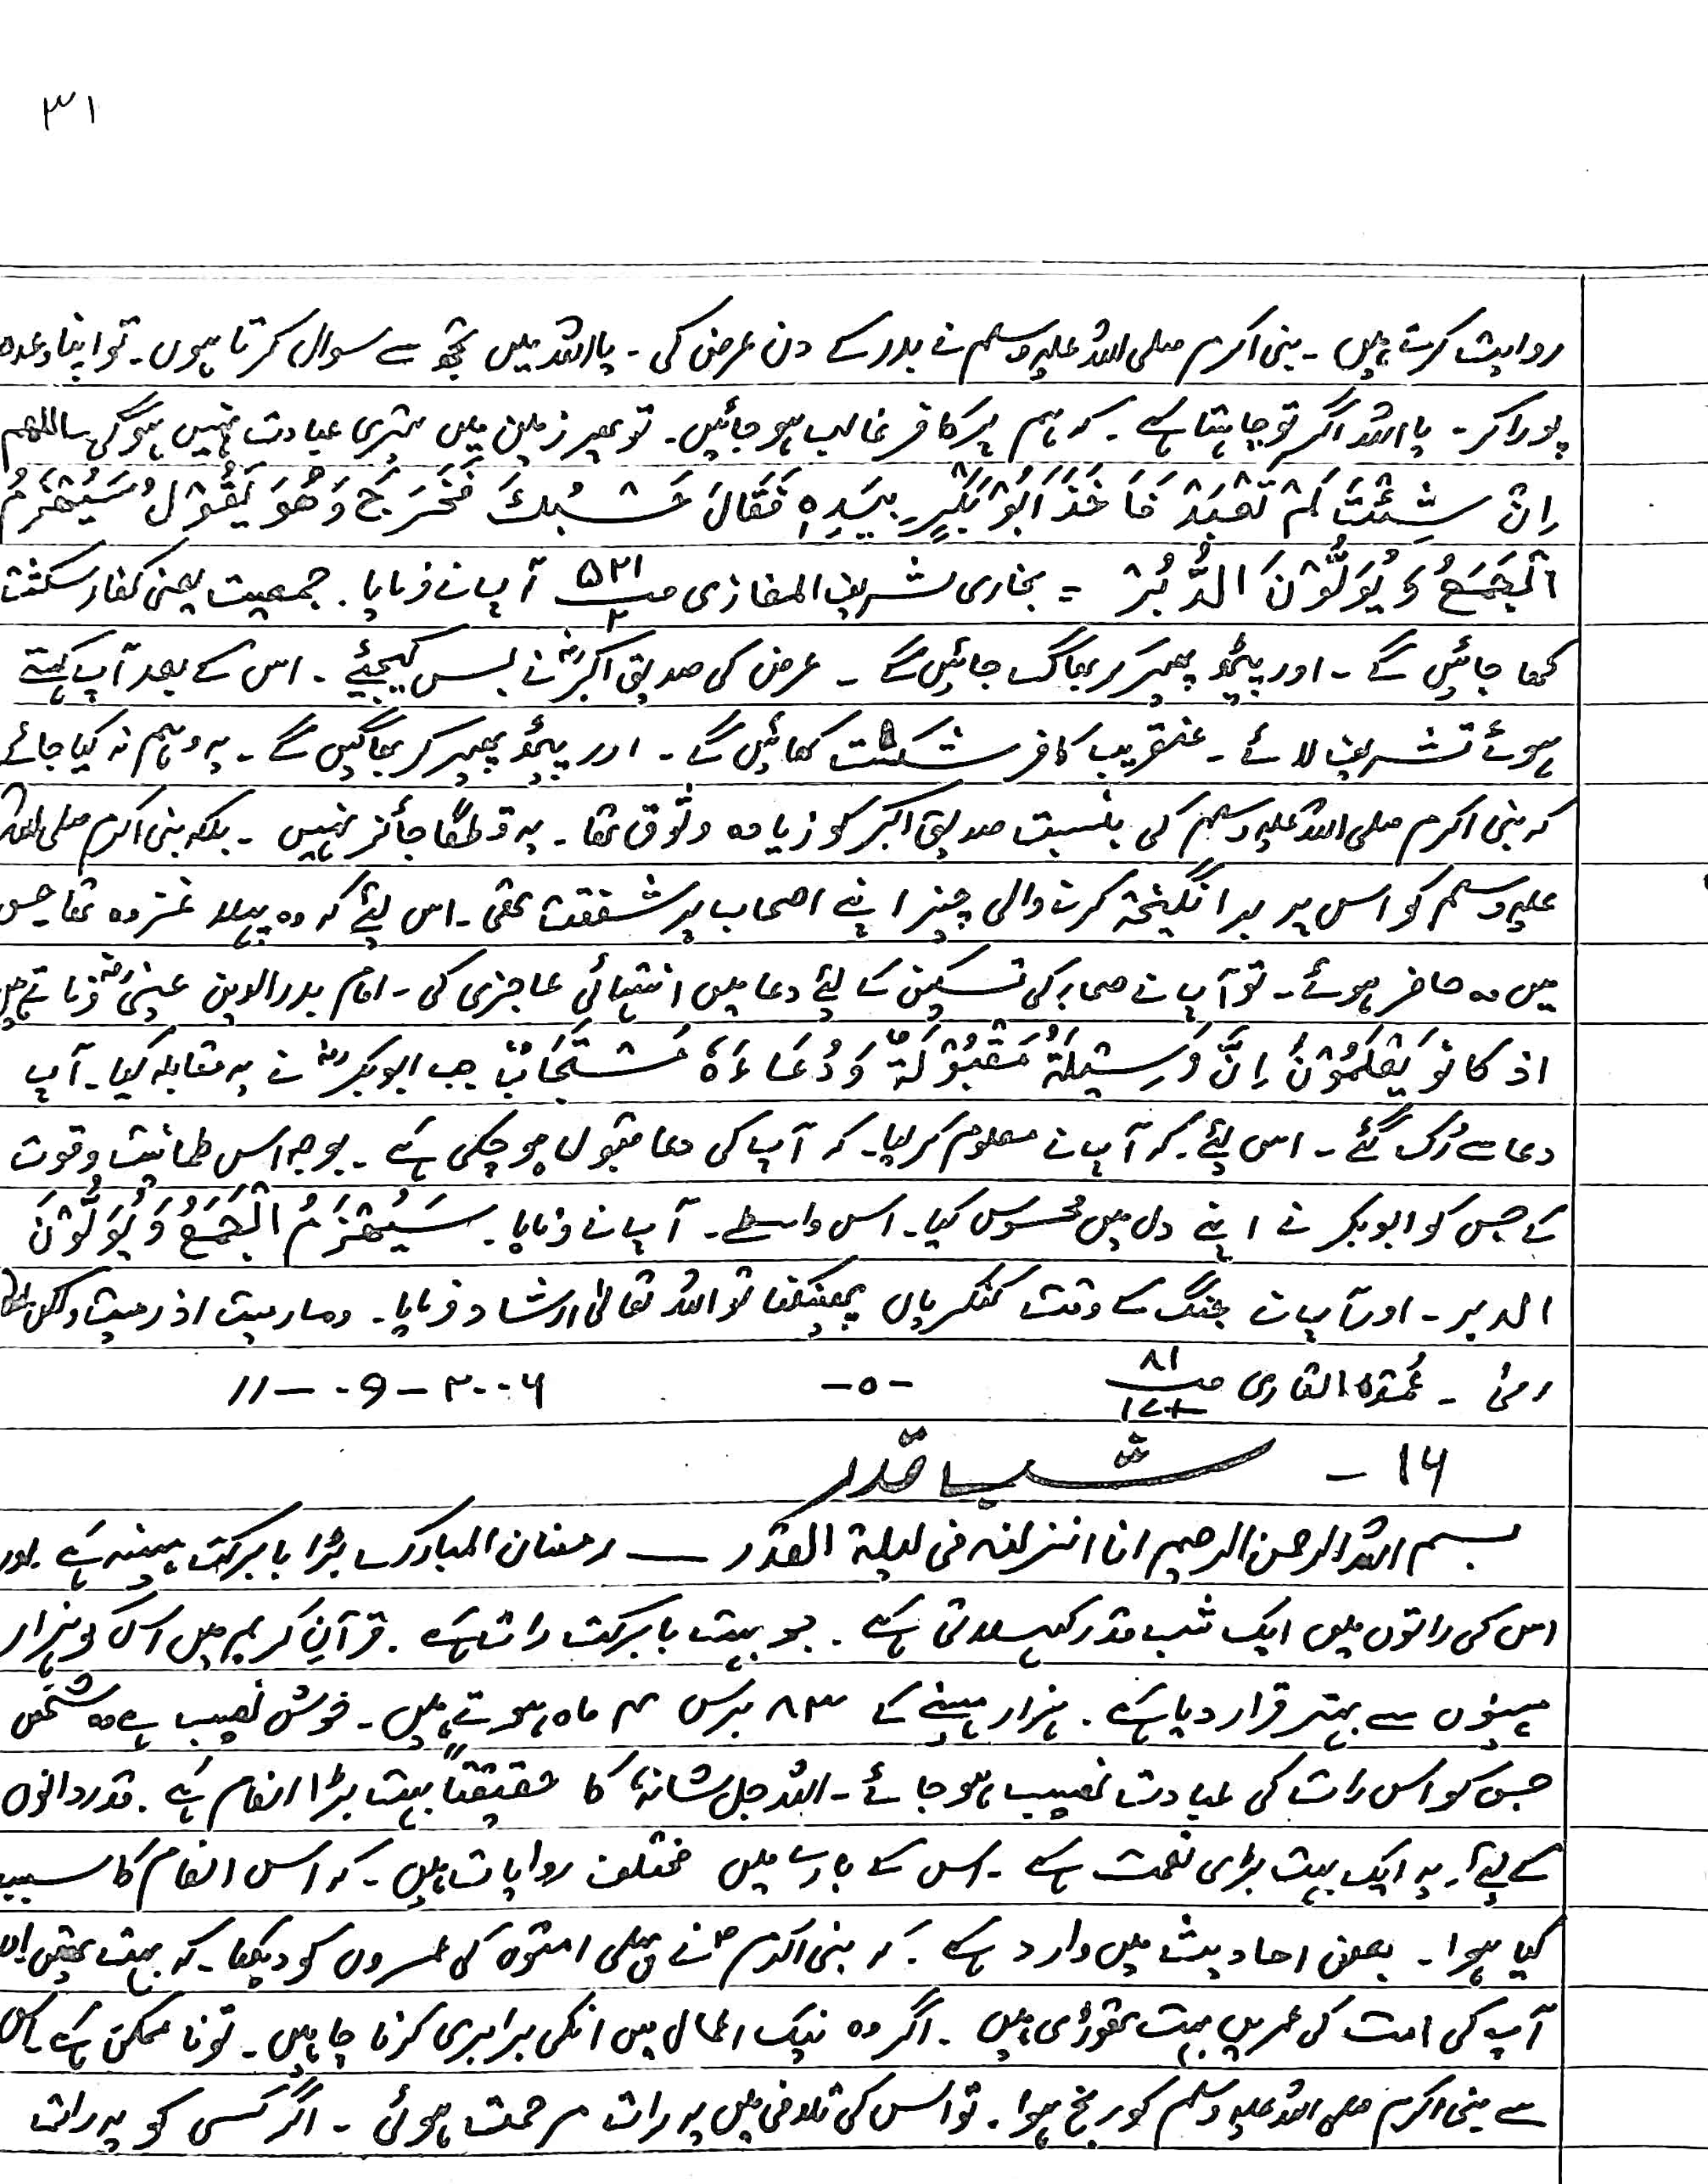 ۳۱
روایت کرتے ہیں ۔ نبی اکرم صلی اللہ علیہ وسلم نے بدر کے دن عرض کی ۔ یا اللہ میں تجھ سے سوال کرتا ہوں ۔ تو اپنا وعدہ
پورا کر ۔ یا اللہ اگر تو چاہتا ہے ۔ کہ ہم پر کافر غالب ہو جائیں ۔ تو پھر زمین میں تیری عبادت نہیں ہوگی ۔ اللھم
اِنْ شِئْتَ لَمْ تُعْبَدْ فَاَخَذَ اَبُوْ بَکْرٍ بِیَدِہٖ فَقَالَ حَسْبُکَ فَخَرَجَ وَھُوَ یَقُوْلُ سَیُھْزَمُ
الْجَمْعُ وَ یُوَلُّوْنَ الدُّبُرْ = بخاری شریف المغازی صـ ۵۳۱/۲ آپ نے فرمایا ۔ جمعیت یعنی کفار شکست
کھا جائیں گے ۔ اور پیٹھ پھیر کر بھاگ جائیں گے ۔ عرض کی صدیق اکبرؓ نے بس کیجئے ۔ اس کے بعد آپ کہتے
ہوئے تشریف لائے ۔ عنقریب کافر شکست کھائیں گے ۔ اور پیٹھ پھیر کر بھاگیں گے ۔ یہ وہم نہ کیا جائے
کہ نبی اکرم صلی اللہ علیہ وسلم کی بنسبت صدیق اکبر کو زیادہ وثوق تھا ۔ یہ قطعًا جائز نہیں ۔ بلکہ نبی اکرم صلی اللہ
علیہ وسلم کو اس پر برانگیختہ کرنے والی چیز اپنے اصحاب پر شفقت تھی ۔ اس لئے کہ وہ پہلا غزوہ تھا جس
میں وہ حاضر ہوئے ۔ تو آپ نے صحابہ کی تسکین کے لئے دعا میں انتہائی عاجزی کی ۔ امام بدرالدین عینیؒ فرماتے ہیں
اذ کانو یَعْلَمُوْنَ اِنَّ وَسِیْلَۃُ مَقْبُوْلَۃٌ وَ دُعَاءَہٗ مُسْتَجَابٌ جب ابوبکرؓ نے یہ مقابلہ کیا ۔ آپ
دعا سے رُک گئے ۔ اس لئے ۔ کہ آپ نے معلوم کر لیا ۔ کہ آپ کی دعا مقبول ہو چکی ہے ۔ بوجہ اس طمانیت و قوت
کے جس کو ابوبکر نے اپنے دل میں محسوس کیا ۔ اس واسطے ۔ آپ نے فرمایا ۔ سَیُھْزَمُ الْجَمْعُ وَ یُوَلُّوْنَ
الدبر ۔ اور آپ نے جنگ کے وقت کنکریاں پھینکنا تو اللہ تعالیٰ ارشاد فرمایا ۔ ومارمیت اذ رمیت ولکن اللہ
رمیٰ ۔ عُمدۃ القاری صـ ۸۱ -۰- ۱۱-۰۹-۲۰۰۶
۱۶ - شبِ قدر
بسم اللہ الرحمن الرحیم انا انزلنہ فی لیلۃ القدر — رمضان المبارک بڑا بابرکت مہینہ ہے ۔ اور
اس کی راتوں میں ایک شب قدر کہلاتی ہے ۔ جو بہت بابرکت رات ہے ۔ قرآنِ کریم میں اس کو ہزار
مہینوں سے بہتر قرار دیا ہے ۔ ہزار مہینے کے ۸۳ برس ۴ ماہ ہوتے ہیں ۔ خوش نصیب ہے وہ شخص
جس کو اس رات کی عبادت نصیب ہو جائے ۔ اللہ جل شانہٗ کا حقیقتاً بہت بڑا انعام ہے ۔ قدر دانوں
کے لئے ۔ یہ ایک بہت بڑی نعمت ہے ۔ اس کے بارے میں مختلف روایات ہیں ۔ کہ اس انعام کا سبب
کیا ہوا ۔ بعض احادیث میں وارد ہے ۔ کہ نبی اکرمؐ نے پہلی امتوں کی عمروں کو دیکھا ۔ کہ بہت تھیں اور
آپ کی امت کی عمریں بہت تھوڑی ہیں ۔ اگر وہ نیک اعمال میں انکی برابری کرنا چاہیں ۔ تو ناممکن ہے ۔ اس
سے نبی اکرم صلی اللہ علیہ وسلم کو رنج ہوا ۔ تو اس کی تلافی میں یہ رات مرحمت ہوئی ۔ اگر کسی کو یہ رات